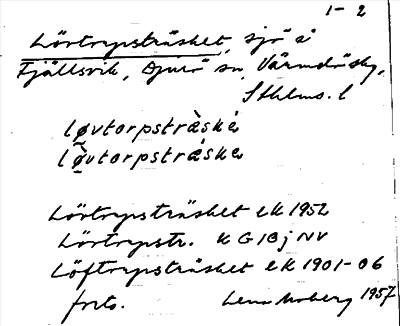 1-2
Lövtorpsträsket, sjö i
Fjällsvik, Djurö sn, Värmdö skg,
Sthlms. l
løvtorpstræske
lòvtorpstræske
Lövtorpsträsket ek 1952
Lövtorpstr. K G IB j NV
Löftorpsträsket eK 1901-06
forts. Lena Moberg 1957